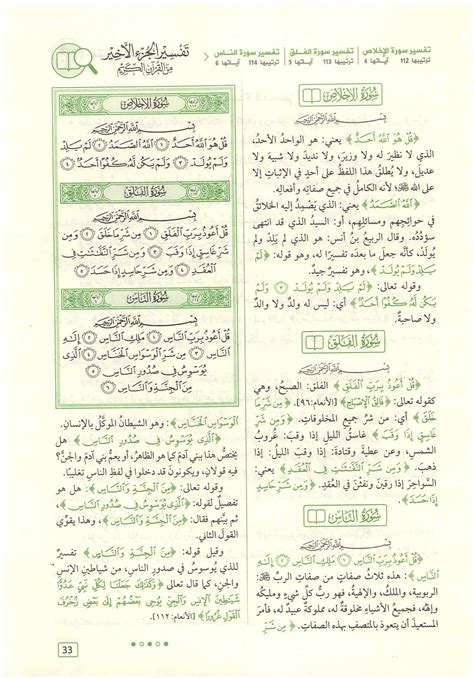 تفسير الجزء الأخير
من القرآن الكريم
تفسير سورة الإخلاص
ترتيبها 112 آياتها 4
تفسير سورة الفلق
ترتيبها 113 آياتها 5
تفسير سورة الناس
ترتيبها 114 آياتها 6
سورة الإخلاص
بسم الله الرحمن الرحيم
﴿قُلْ هُوَ اللَّهُ أَحَدٌ﴾ يعني: هو الواحدُ الأحدُ،
الذي لا نظيرَ له ولا وزيرَ، ولا نديدَ ولا شبيهَ ولا
عديلَ، ولا يُطلَقُ هذا اللفظُ على أحدٍ في الإثباتِ إلا
على اللهِ ﷻ؛ لأنه الكاملُ في جميعِ صفاتِه وأفعالِه.
﴿اللَّهُ الصَّمَدُ﴾ يعني: الذي يَصْمُدُ إليه الخلائقُ
في حوائجِهم ومسائلِهم، أو: السيدُ الذي قد انتهى
سؤدُدُه. وقال الربيعُ بنُ أنس: هو الذي لم يَلِدْ ولم
يُولَدْ، كأنه جعل ما بعده تفسيرًا له، وهو قوله: ﴿لَمْ
يَلِدْ وَلَمْ يُولَدْ﴾، وهو تفسيرٌ جيدٌ.
﴿لَمْ يَلِدْ وَلَمْ يُولَدْ ۝٣ وَلَمْ
يَكُن لَّهُ كُفُوًا أَحَدٌ﴾ أي: ليس له ولدٌ ولا والدٌ
ولا صاحبةٌ.
سورة الفلق
بسم الله الرحمن الرحيم
﴿قُلْ أَعُوذُ بِرَبِّ الْفَلَقِ﴾ الفلق: الصبحُ، وهي
كقوله تعالى: ﴿فَالِقُ الْإِصْبَاحِ﴾ [الأنعام:٩٦]. ﴿مِن شَرِّ مَا
خَلَقَ﴾ أي: من شرِّ جميعِ المخلوقاتِ. ﴿وَمِن شَرِّ
غَاسِقٍ إِذَا وَقَبَ﴾ غاسقُ الليلِ إذا وقبَ: غُروبُ
الشمسِ، وعن عطيةَ وقتادةَ: إذا وقبَ: الليلُ إذا
ذهبَ. ﴿وَمِن شَرِّ النَّفَّاثَاتِ فِي الْعُقَدِ﴾ يعني:
السَّواحِرَ إذا رقينَ ونفثنَ في العُقَدِ. ﴿وَمِن شَرِّ حَاسِدٍ
إِذَا حَسَدَ﴾
سورة الناس
بسم الله الرحمن الرحيم
﴿قُلْ أَعُوذُ بِرَبِّ النَّاسِ ۝١ مَلِكِ النَّاسِ ۝٢ إِلَٰهِ
النَّاسِ﴾: هذه ثلاثُ صفاتٍ من صفاتِ الربِّ ﷻ:
الربوبيةُ، والملكُ، والإلهيةُ، فهو ربُّ كلِّ شيءٍ ومليكُه
وإلهُه، فجميعُ الأشياءِ مخلوقةٌ له، مملوكةٌ عبيدٌ له، فأمرَ
المستعيذَ أن يتعوذَ بالمتصفِ بهذه الصفاتِ. ﴿مِن شَرِّ
سورة الإخلاص
بسم الله الرحمن الرحيم
قُلْ هُوَ اللَّهُ أَحَدٌ ۝١ اللَّهُ الصَّمَدُ ۝٢ لَمْ يَلِدْ
وَلَمْ يُولَدْ ۝٣ وَلَمْ يَكُن لَّهُ كُفُوًا أَحَدٌ ۝٤
سورة الفلق
بسم الله الرحمن الرحيم
قُلْ أَعُوذُ بِرَبِّ الْفَلَقِ ۝١ مِن شَرِّ مَا خَلَقَ ۝٢ وَمِن
شَرِّ غَاسِقٍ إِذَا وَقَبَ ۝٣ وَمِن شَرِّ النَّفَّاثَاتِ فِي
الْعُقَدِ ۝٤ وَمِن شَرِّ حَاسِدٍ إِذَا حَسَدَ ۝٥
سورة الناس
بسم الله الرحمن الرحيم
قُلْ أَعُوذُ بِرَبِّ النَّاسِ ۝١ مَلِكِ النَّاسِ ۝٢ إِلَٰهِ
النَّاسِ ۝٣ مِن شَرِّ الْوَسْوَاسِ الْخَنَّاسِ ۝٤ الَّذِي
يُوَسْوِسُ فِي صُدُورِ النَّاسِ ۝٥
مِنَ الْجِنَّةِ وَالنَّاسِ ۝٦
الْوَسْوَاسِ الْخَنَّاسِ﴾: وهو الشيطانُ الموكَّلُ بالإنسانِ.
﴿الَّذِي يُوَسْوِسُ فِي صُدُورِ النَّاسِ﴾ هل
يختصُّ هذا ببني آدمَ كما هو الظاهرُ، أو يعمُّ بني آدمَ والجنَّ؟
فيه قولان، ويكونونَ قد دخلوا في لفظِ الناسِ تغليبًا.
وقوله تعالى: ﴿مِنَ الْجِنَّةِ وَالنَّاسِ﴾: هل هو
تفصيلٌ لقوله: ﴿الَّذِي يُوَسْوِسُ فِي صُدُورِ النَّاسِ﴾،
ثم بيَّنهم فقال: ﴿مِنَ الْجِنَّةِ وَالنَّاسِ﴾، وهذا يقوِّي
القولَ الثاني.
وقيل قوله: ﴿مِنَ الْجِنَّةِ وَالنَّاسِ﴾ تفسيرٌ
للذي يُوسوسُ في صدورِ الناسِ، من شياطينِ الإنسِ
والجنِ، كما قال تعالى: ﴿وَكَذَٰلِكَ جَعَلْنَا لِكُلِّ نَبِيٍّ عَدُوًّا
شَيَاطِينَ الْإِنسِ وَالْجِنِّ يُوحِي بَعْضُهُمْ إِلَىٰ بَعْضٍ زُخْرُفَ
الْقَوْلِ غُرُورًا﴾ [الأنعام:١١٢].
33